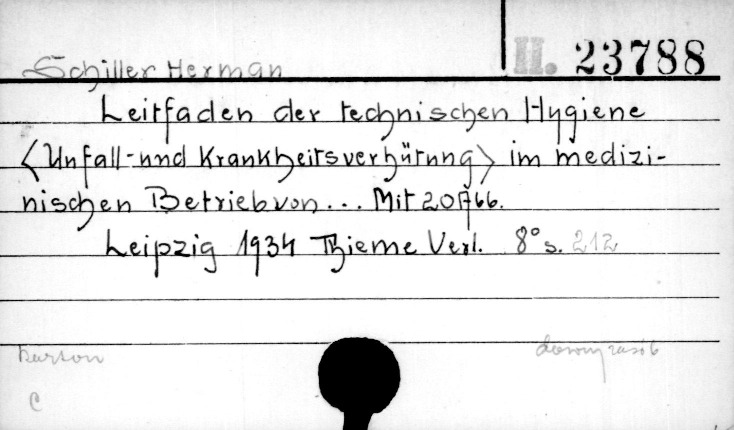 II. 23788
Schiller Herman
Leitfaden der technischen Hygiene
<Unfall- und Krankheitsverhütung> im medizi-
nischen Betrieb von ... Mit 20 Abb.
Leipzig 1934 Thieme Verl. 8° s. 212
karton
C